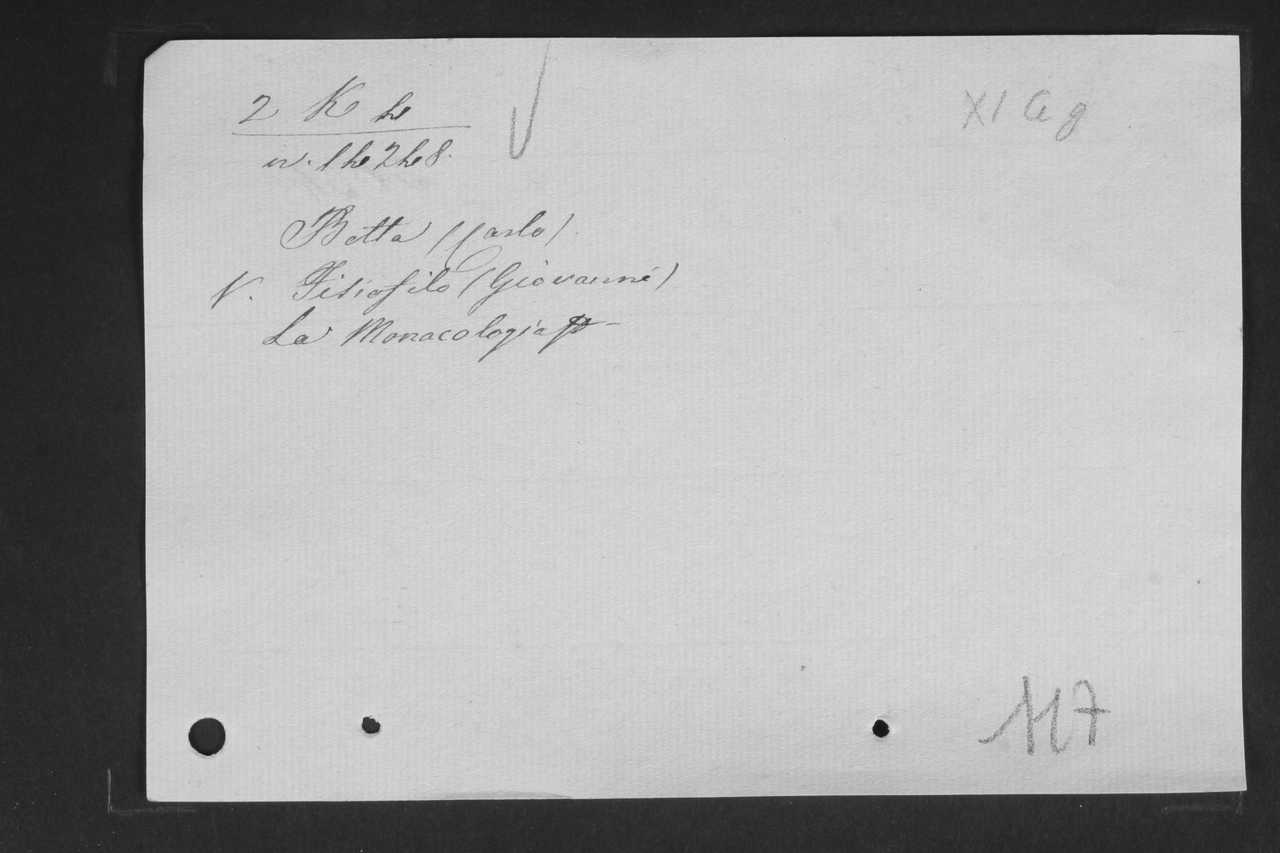 2 K h
XI a g
Botta (Carlo).
V. Fisiofilo (Giovanni)
La Monacologia
117